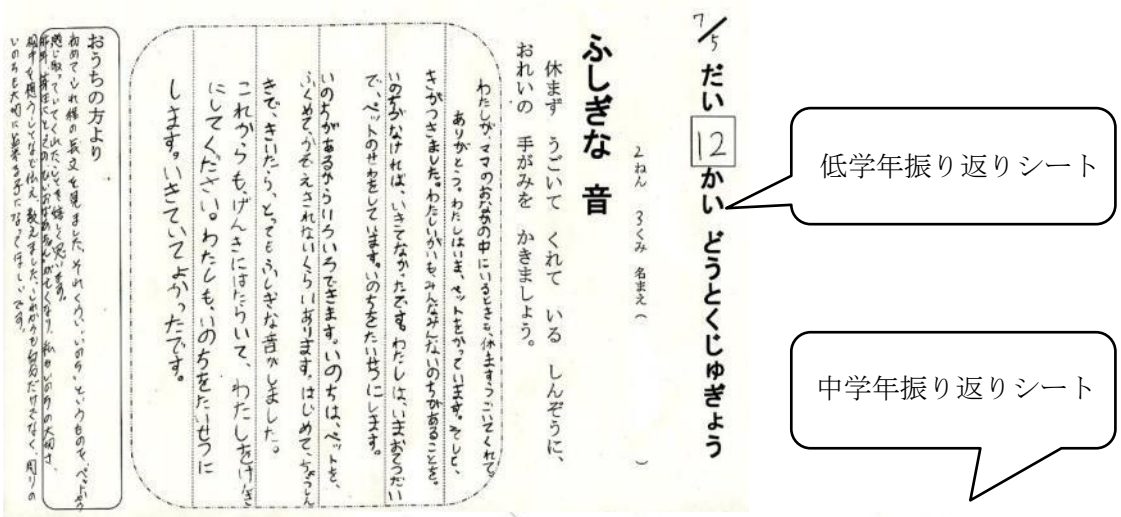 7/5 だい12かい どうとくじゅぎょう
2ねん 3くみ 名まえ( )
ふしぎな 音
休まず うごいて くれて いる しんぞうに、
おれいの 手がみを かきましょう。
わたしが、ママのおなかの中にいるときも、休まずうごいてくれて、
ありがとう。わたしはいま、ペットをかっています。そして、
きがつきました。わたしいがいも、みんなみんないのちがあることを。
いのちがなければ、いきてなかったです。わたしは、いまおてつだい
で、ペットのせわをしています。いのちをたいせつにします。
いのちがあるからいろいろできます。いのちは、ペットを、
ふくめて、かぞえきれないくらいあります。はじめて、ちょうしん
きで、きいたら、とってもふしぎな音がしました。
これからも、げんきにはたらいて、わたしをげんき
にしてください。わたしも、いのちをたいせつに
します。いきていてよかったです。
おうちの方より
初めてこれ程の長文を見ました。それくらい“いのち”というものを、ペットから
感じ取っていてくれたことを嬉しく思います。
いのちも大切に出来る子になってほしいです。
低学年振り返りシート
中学年振り返りシート